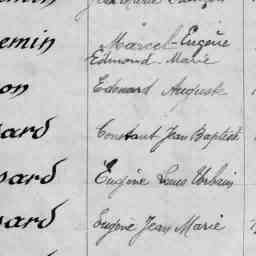 emin Marcel-Eugène
Edmond-Marie
on Edouard August
ard Constant Jean Baptiste
ard Eugène Louis Urbain
ard Eugène Jean Marie